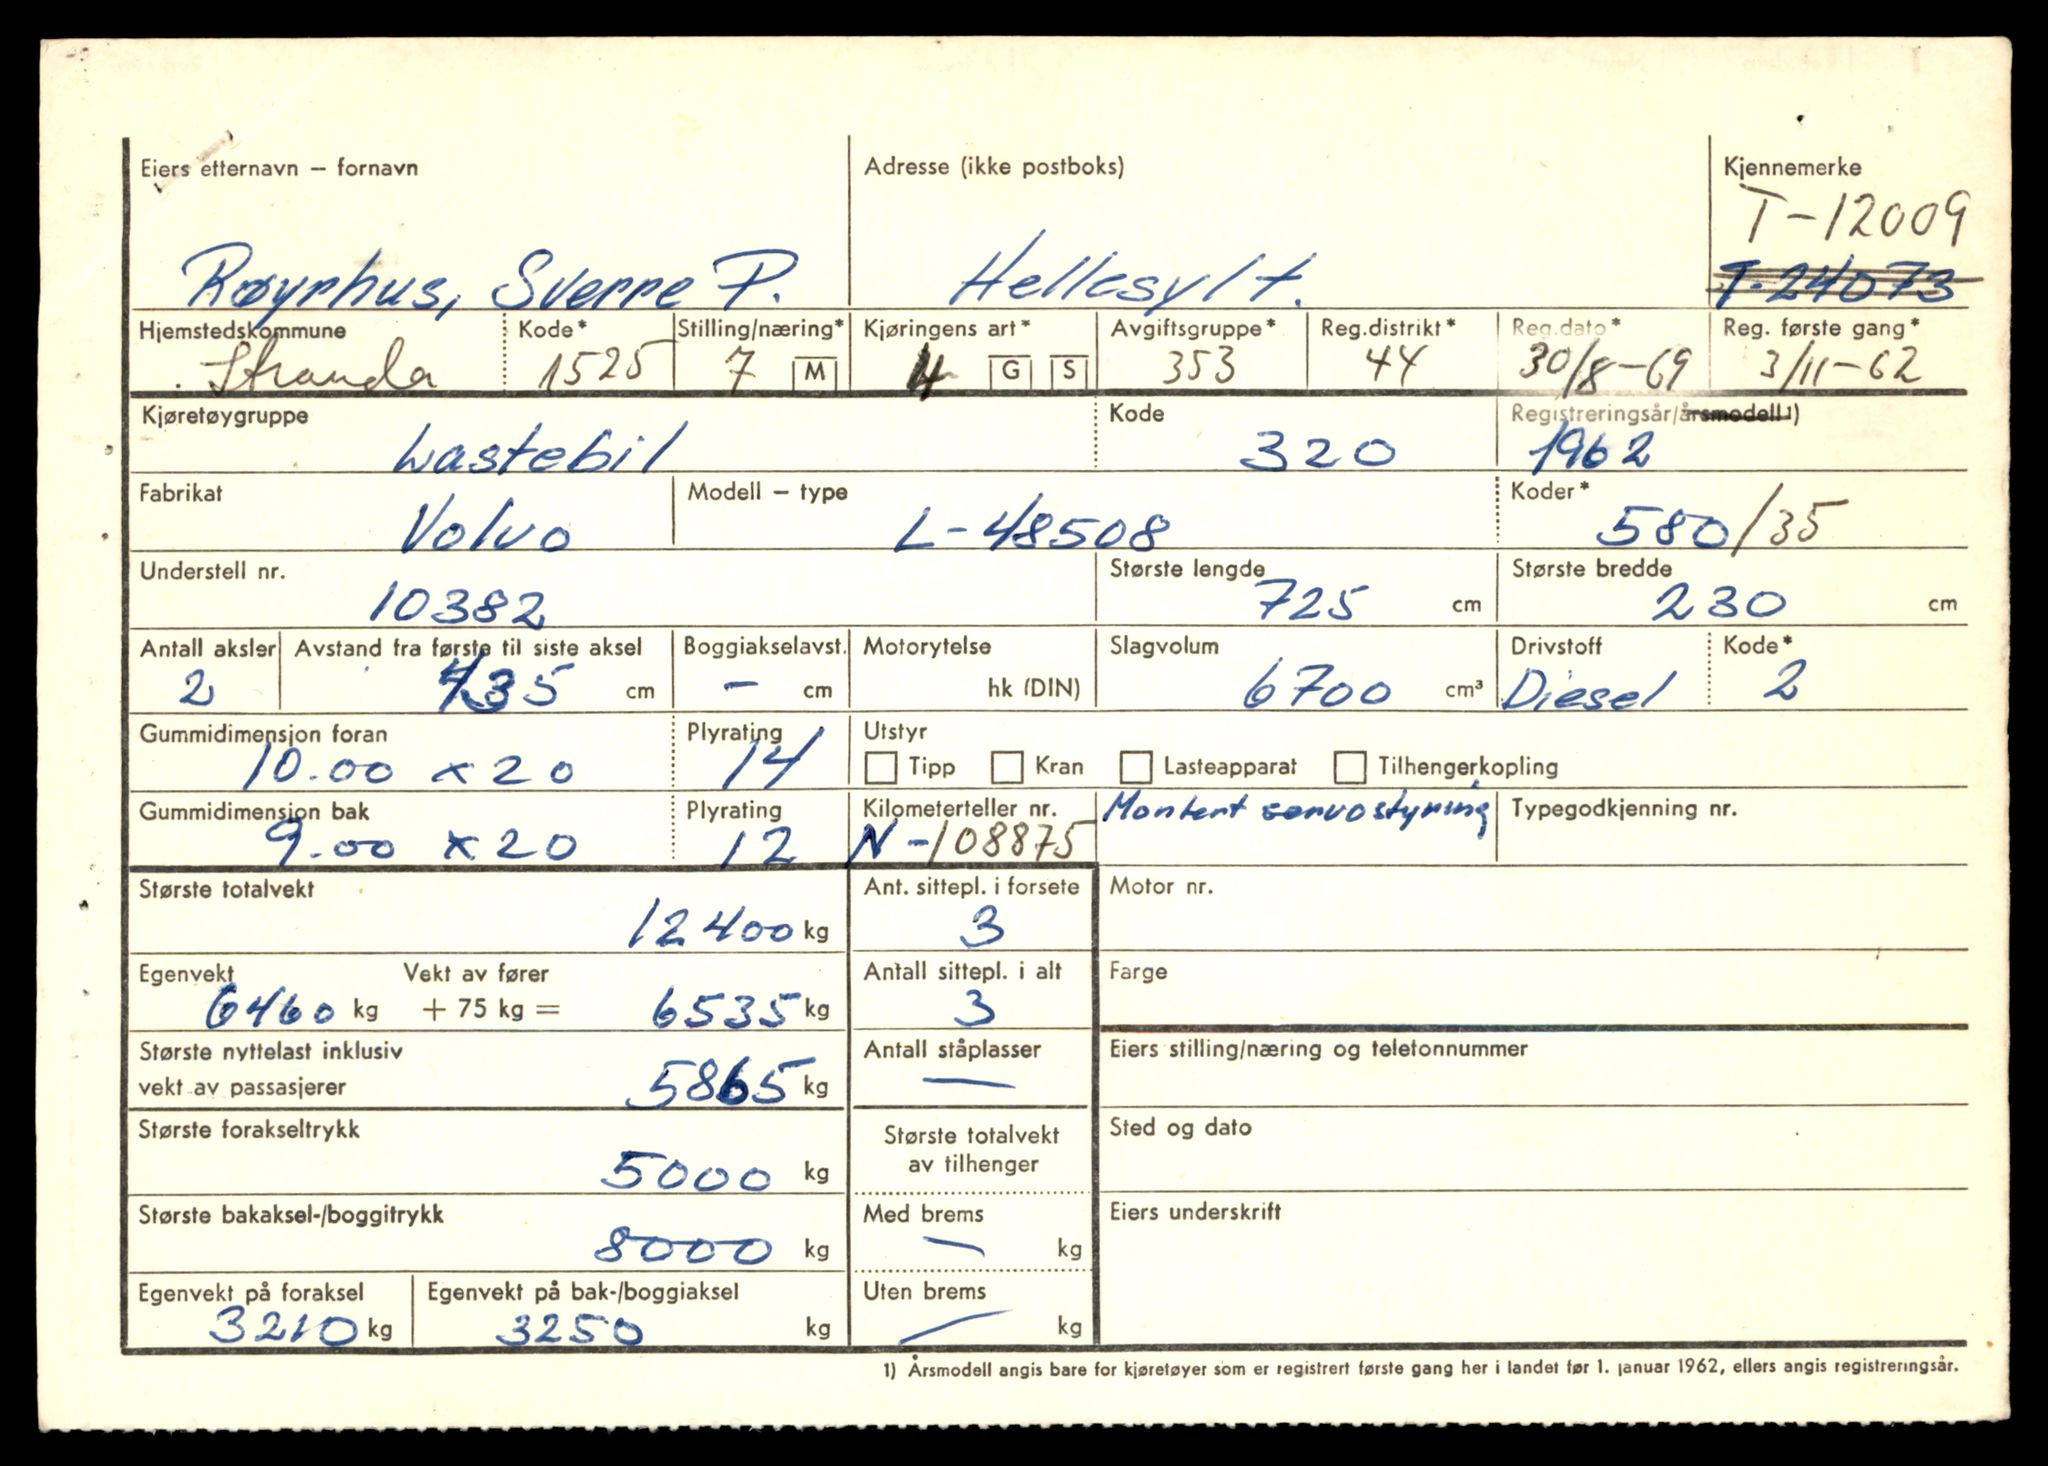 Eiers etternavn – fornavn Adresse (ikke postboks) Kjennemerke
T-12009
Røyrhus, Sverre P. Hellesylt. T-24073
Hjemstedskommune Kode* Stilling/næring* Kjøringens art* Avgiftsgruppe* Reg.distrikt* Reg.dato* Reg. første gang*
Stranda 1525 7 M 4 G S 353 44 30/8-69 3/11-62
Kjøretøygruppe Kode Registreringsår/årsmodell1)
Lastebil 320 1962
Fabrikat Modell – type Koder*
Volvo L-48508 580/35
Understell nr. Største lengde Største bredde
10382 725 cm 230 cm
Antall aksler Avstand fra første til siste aksel Boggiakselavst. Motorytelse Slagvolum Drivstoff Kode*
2 435 cm – cm hk (DIN) 6700 cm³ Diesel 2
Gummidimensjon foran Plyrating Utstyr
10.00 x 20 14 Tipp Kran Lasteapparat Tilhengerkopling
Gummidimensjon bak Plyrating Kilometerteller nr. Montert servostyring Typegodkjenning nr.
9.00 x 20 12 N-108875
Største totalvekt Ant. sittepl. i forsete Motor nr.
12400 kg 3
Egenvekt Vekt av fører Antall sittepl. i alt Farge
6460 kg + 75 kg = 6535 kg 3
Største nyttelast inklusiv Antall ståplasser Eiers stilling/næring og telefonnummer
vekt av passasjerer 5865 kg —
Største forakseltrykk Største totalvekt Sted og dato
5000 kg av tilhenger
Største bakaksel-/boggitrykk Med brems Eiers underskrift
8000 kg — kg
Egenvekt på foraksel Egenvekt på bak-/boggiaksel Uten brems
3210 kg 3250 kg — kg
1) Årsmodell angis bare for kjøretøyer som er registrert første gang her i landet før 1. januar 1962, ellers angis registreringsår.